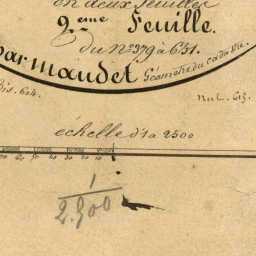 en deux feuilles
2.eme Feuille.
du N° 379 à 651.
par maudet Géometre du cadastre
échelle d'1 a 2500
1
2.500